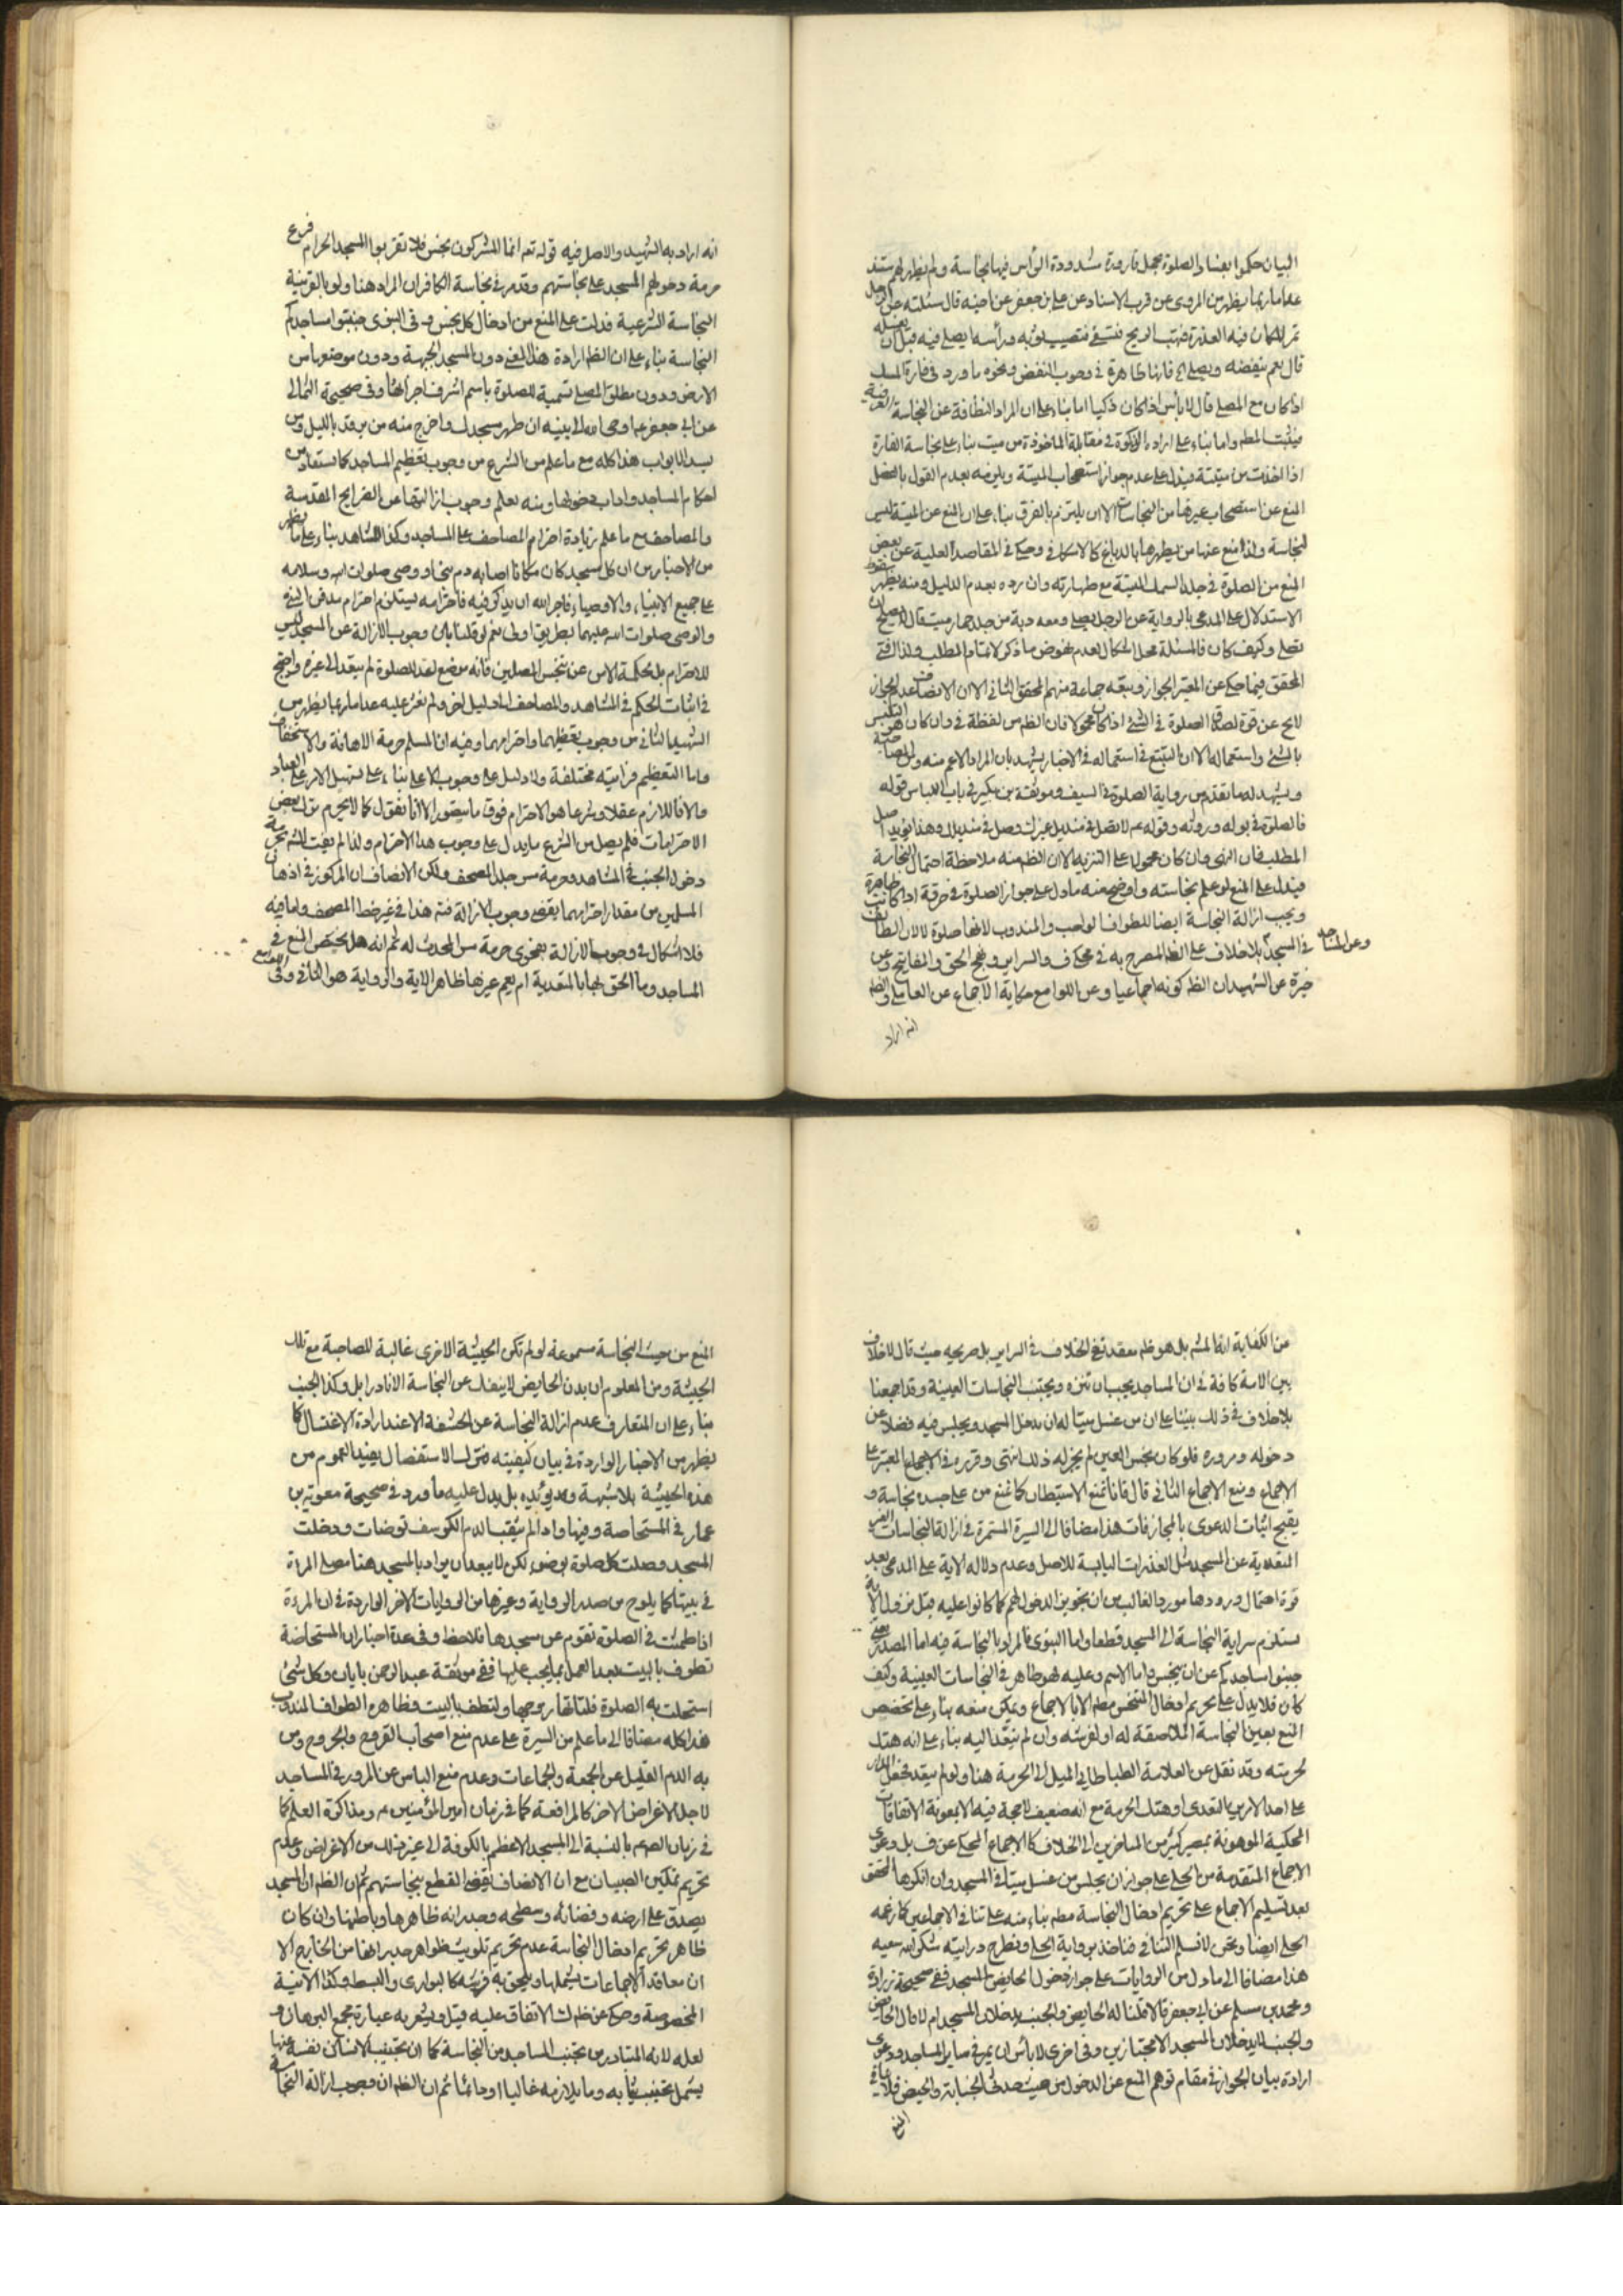 البيان حكموا بفساد الصلوة بحمل قارورة مشدودة الرأس فيها نجاسة ولم يظهر لهم مستند
عدا ما ربما يظهر من المروى عن قرب الاسناد عن على بن جعفر عن اخيه قال سئلته عن الرجل
يمر بالمكان فيه العذرة فتهب الريح فتسفى فتصيب ثوبه ورأسه ايصلى فيه قبل ان يغسله
قال نعم ينفضه ويصلى الخ فانها ظاهرة فى وجوب النفض ونحوه ما ورد فى فارة المسك
اذا كان مع المصلى قال لا بأس اذا كان ذكيا اما بناء على ان المراد النظافة عن النجاسة العرضية
فيثبت المطم واما بناء على ارادة الذكوة فى مقابلة الماخوذة من ميت بناء على نجاسة الفارة
اذا اخذت من ميتة فيدل على عدم جواز استصحاب الميتة ويلزمه بعدم القول بالفصل
المنع عن استصحاب غيرها من النجاسات الا ان يلتزم بالفرق بناء على ان المنع عن الميتة ليس
لنجاسة ولذا منع عنها من يطهرها بالدباغ كالاسكافى وحكى فى المقاصد العلية عن بعض
المنع من الصلوة فى جلد السمك الميتة مع طهارته وان رده بعدم الدليل ومنه يظهر سقوط
الاستدلال على المدعى بالرواية عن الرجل يصلى ومعه دبة من جلد حمار ميت قال لا يصلح ان
يصلى وكيف كان فالمسئلة محل اشكال لعدم نهوض ما ذكر لاتمام المطلب ولذا افتى
المحقق فيما حكى عن المعتبر بالجواز وتبعه جماعة منهم المحقق الثانى الا ان الانصاف ان عدم الجواز
لا يخ عن قوة لصدق الصلوة فى الشئ اذا كان محمولا فان الظم من لفظة فى وان كان هو التلبس
بالشئ واستعماله الا ان التتبع فى استعماله فى الاخبار يشهد بان المراد الاعم منه ومن المصاحبة
ويشهد له ما تقدم من رواية الصلوة فى السيف وموثقة بن بكير فى باب اللباس قوله
فالصلوة فى بوله وروثه وقوله عم لا تصل فى منديل غيرك وصل فى منديلك وهذا يؤيد اصل
المطلب فان النهى وان كان محمولا على التنزيه الا ان الظم منه ملاحظة احتمال النجاسة
فيدل على المنع لو علم نجاسته واوضح منه ما دل على جواز الصلوة فى خرقة اذا كانت طاهرة
ويجب ازالة النجاسة ايضا للطواف الواجب والمندوب لانها صلوة لان الطائف
فى المسجد بلا خلاف على الظم المصرح به فى محكى ف والسراير ونهج الحق والمفاتيح وعن
وعن المناهل
خيرة عن الشهيد ان الظم كونه اجماعيا وعن اللوامع حكاية الاجماع عن العاملى والظم
انه اراد
انه اراد به الشهيد والاصل فيه قوله تعم انما المشركون نجس فلا يقربوا المسجد الحرام فرع
حرمة دخولهم المسجد على نجاستهم وقد مر فى نجاسة الكافر ان المراد هنا ولو بالقرينة
النجاسة الشرعية فدلت على المنع من ادخال كل نجس وفى النبوى جنبوا مساجدكم
النجاسة بناء على ان الظم ارادة هذا المعنى دون المسجد الجبهة ودون موضعها من
الارض ودون مطلق المصلى تسمية للصلوة باسم اشرف اجزائها وفى صحيحة الثمالى
عن ابى جعفر عم اوحى الله الى نبيه ان طهر مسجدك واخرج منه من يرقد بالليل ومن
سد الابواب هذا كله مع ما علم من الشرع من وجوب تعظيم المساجد كما يستفاد من
احكام المساجد واداب دخولها ومنه يعلم وجوب ازالتها عن الضرايح المقدسة
والمصاحف مع ما علم زيادة احترام المصاحف على المساجد وكذا المشاهد بناء على ما يظهر
من الاخبار من ان كل مسجد كان مكانا اصابه دم نبى او وصى صلوات الله وسلامه
على جميع الانبياء والاوصياء فاجر الله ان يذكر فيه فاحترامه يستلزم احترام مدفن النبى
والوصى صلوات الله عليهما بطريق اولى نعم لو قلنا بان وجوب الازالة عن المسجد ليس
للاحترام بل لحكمة الامن عن تنجس المصلين فانه موضع اعد للصلوة لم يتعد الى غيره واحتج
فى اثبات الحكم فى المشاهد والمصاحف الى دليل اخر ولم نعثر عليه عدا ما ربما يظهر من
الشهيد الثانى من وجوب تعظيمهما واحترامهما وفيه ان المسلم حرمة الاهانة والاستخفاف
واما التعظيم فمراتبه مختلفة ولا دليل على وجوب الاعلى بناء على تسهيل الامر على العباد
والا فاللازم عقلا وشرعا هو الاحترام فوق ما يتصور الا انا نقول كما لا يحرم ترك بعض
الاحترامات فلم يصل من الشرع ما يدل على وجوب هذا الاحترام ولذا لم يفت المشم بحرمة
دخول الجنب فى المشاهد وحرمة مس جلد المصحف ولكن الانصاف ان المركوز فى اذهان
المسلمين من مقدار احترامهما يقضى بوجوب الازالة فتم هذا فى غير خط المصحف واما فيه
فلا اشكال فى وجوب الازالة بفحوى حرمة مس المحدث له ثم انه هل يختص المنع فى
المساجد وما الحق بها بالمتعدية ام يعم غيرها ظاهر الاية والرواية هو الثانى وفى
من الكفاية انه المشم بل هو ظم معقد نفى الخلاف فى السراير بل صريحه حيث قال لا خلاف
بين الامة كافة فى ان المساجد يجب ان تنزه وتجنب النجاسات العينية وقد اجمعنا
بلا خلاف فى ذلك بيننا على ان من غسل ميتا له ان يدخل المسجد ويجلس فيه فضلا عن
دخوله ومروره فلو كان نجس العين لم يجز له ذلك انتهى وقرره فى الاجماع المعتبر على
الاجماع ومنع الاجماع الثانى قال فانا نمنع الاستيطان كما نمنع من على جسده نجاسة و
يقبح اثبات الدعوى بالمجازفات هذا مضافا الى السيرة المستمرة فى ازالة النجاسات الغير
المتعدية عن المسجد مثل العذرات اليابسة للاصل وعدم دلالة الاية على المدعى بعد
قوة احتمال ورودها مورد الغالب من ان تجويز الدخول لهم كما كانوا عليه قبل نزول الاية
يستلزم سراية النجاسة الى المسجد قطعا واما النبوى فالمراد بالنجاسة فيه اما المصدر يعنى
جنبوا مساجدكم عن ان ينجس واما الاسم وعليه فهو ظاهر فى النجاسات العينية وكيف
كان فلا يدل على تحريم ادخال المتنجس مطم الا بالاجماع ويمكن منعه بناء على تخصيص
المنع بعين النجاسة الملاصقة له او لفرشه وان لم يتعد اليه بناء على انه هتك
لحرمته وقد نقل عن العلامة الطباطبائى الميل الى الحرمة هنا ولو لم يتعد فجعل المدار
على احد الامرين التعدى او هتك الحرمة مع انه ضعيف لا حجة فيه الا بمعونة الاتفاقات
المحكية الموهونة بمصير كثير من المتاخرين الى الخلاف كالاجماع المحكى عن ف بل ودعوى
الاجماع المتقدمة من الحلى على جواز ان يجلس من غسل ميتا فى المسجد وان انكرها المحقق
بعد تسليم الاجماع على تحريم ادخال النجاسة مطم بناء منه على تنافى الاجماعين كما زعمه
الحلى ايضا ونحن لا نسلم التنافى فناخذ برواية الحلى ونطرح درايته شكر الله سعيه
هذا مضافا الى ما دل من الروايات على جواز دخول الحايض المسجد ففى صحيحة زرارة
ومحمد بن مسلم عن ابى جعفر قالا قلنا له الحايض والجنب يدخلان المسجد ام لا قال الحايض
والجنب لا يدخلان المسجد الا مجتازين وفى اخرى لا بأس ان يمر فى ساير المساجد ودعوى
ارادة بيان الجواز فى مقام توهم المنع عن الدخول من حيث حدثى الجنابة والحيض فلا ينافى
المنع
المنع من حيث النجاسة مسموعة لو لم تكن الحيثية الاخرى غالبة للصاحبة مع تلك
الحيثية ومن المعلوم ان بدن الحايض لا ينفك عن النجاسة الا نادرا بل وكذا الجنب
بناء على ان المتعارف عدم ازالة النجاسة عن الحشفة الا عند ارادة الاغتسال كما
يظهر من الاخبار الواردة فى بيان كيفيته فترك الاستفصال يفيد العموم من
هذه الحيثية بلا شبهة ويؤيده بل يدل عليه ما ورد فى صحيحة معوية بن
عمار فى المستحاضة وفيها واذا لم يثقب الدم الكرسف توضات ودخلت
المسجد وصلت كل صلوة بوضوء لكن لا يبعد ان يراد بالمسجد هنا مصلى المراة
فى بيتها كما يلوح من صدر الرواية وغيرها من الروايات الاخر الواردة فى ان المراة
اذا طمثت فى الصلوة تقوم عن مسجدها فلاحظ وفى عدة اخبار ان المستحاضة
تطوف بالبيت بعد العمل بما يجب عليها ففى موثقة عبد الرحمن بابان وكل شئ
استحلت به الصلوة فلياتها زوجها ولتطف بالبيت وظاهره الطواف المندوب
هذا كله مضافا الى ما علم من السيرة على عدم منع اصحاب القروح والجروح ومن
به الدم القليل عن الجمعة والجماعات وعدم منع الناس عن المرور فى المساجد
لاجل الاغراض الاخر كالمرافعة كما فى زمان امير المؤمنين ع ومذاكرة العلم كما
فى زمان الصم بالنسبة الى المسجد الاعظم بالكوفة الى غير ذلك من الاغراض وعدم
تحريم تمكين الصبيان مع ان الانصاف يقتضى القطع بنجاستهم ثم ان الظم ان المسجد
يصدق على ارضه وفضائه وسطحه وجدرانه ظاهرها وباطنها وان كان
ظاهر تحريم ادخال النجاسة عدم تحريم تلويث ظواهر جدرانها من الخارج الا
ان معاقد الاجماعات يشملها ويلحق به فرشه كالبوارى والبسط وكذا الانية
المخصوصة وحكى عن ظم لك الاتفاق عليه قيل ويشعر به عبارة مجمع البرهان و
لعله لانه المتبادر من تجنب المساجد من النجاسة كما ان تجنيب الانسان نفسه عنها
يشمل تجنيب ثيابه وما يلازمه غالبا او دائما ثم ان الظم ان وجوب ازالة النجاسة